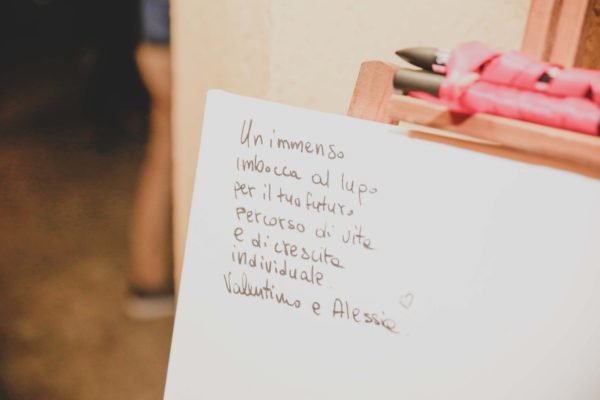 Un immenso
imbocca al lupo
per il tuo futuro
percorso di vita
e di crescita
individuale.
Valentino e Alessia